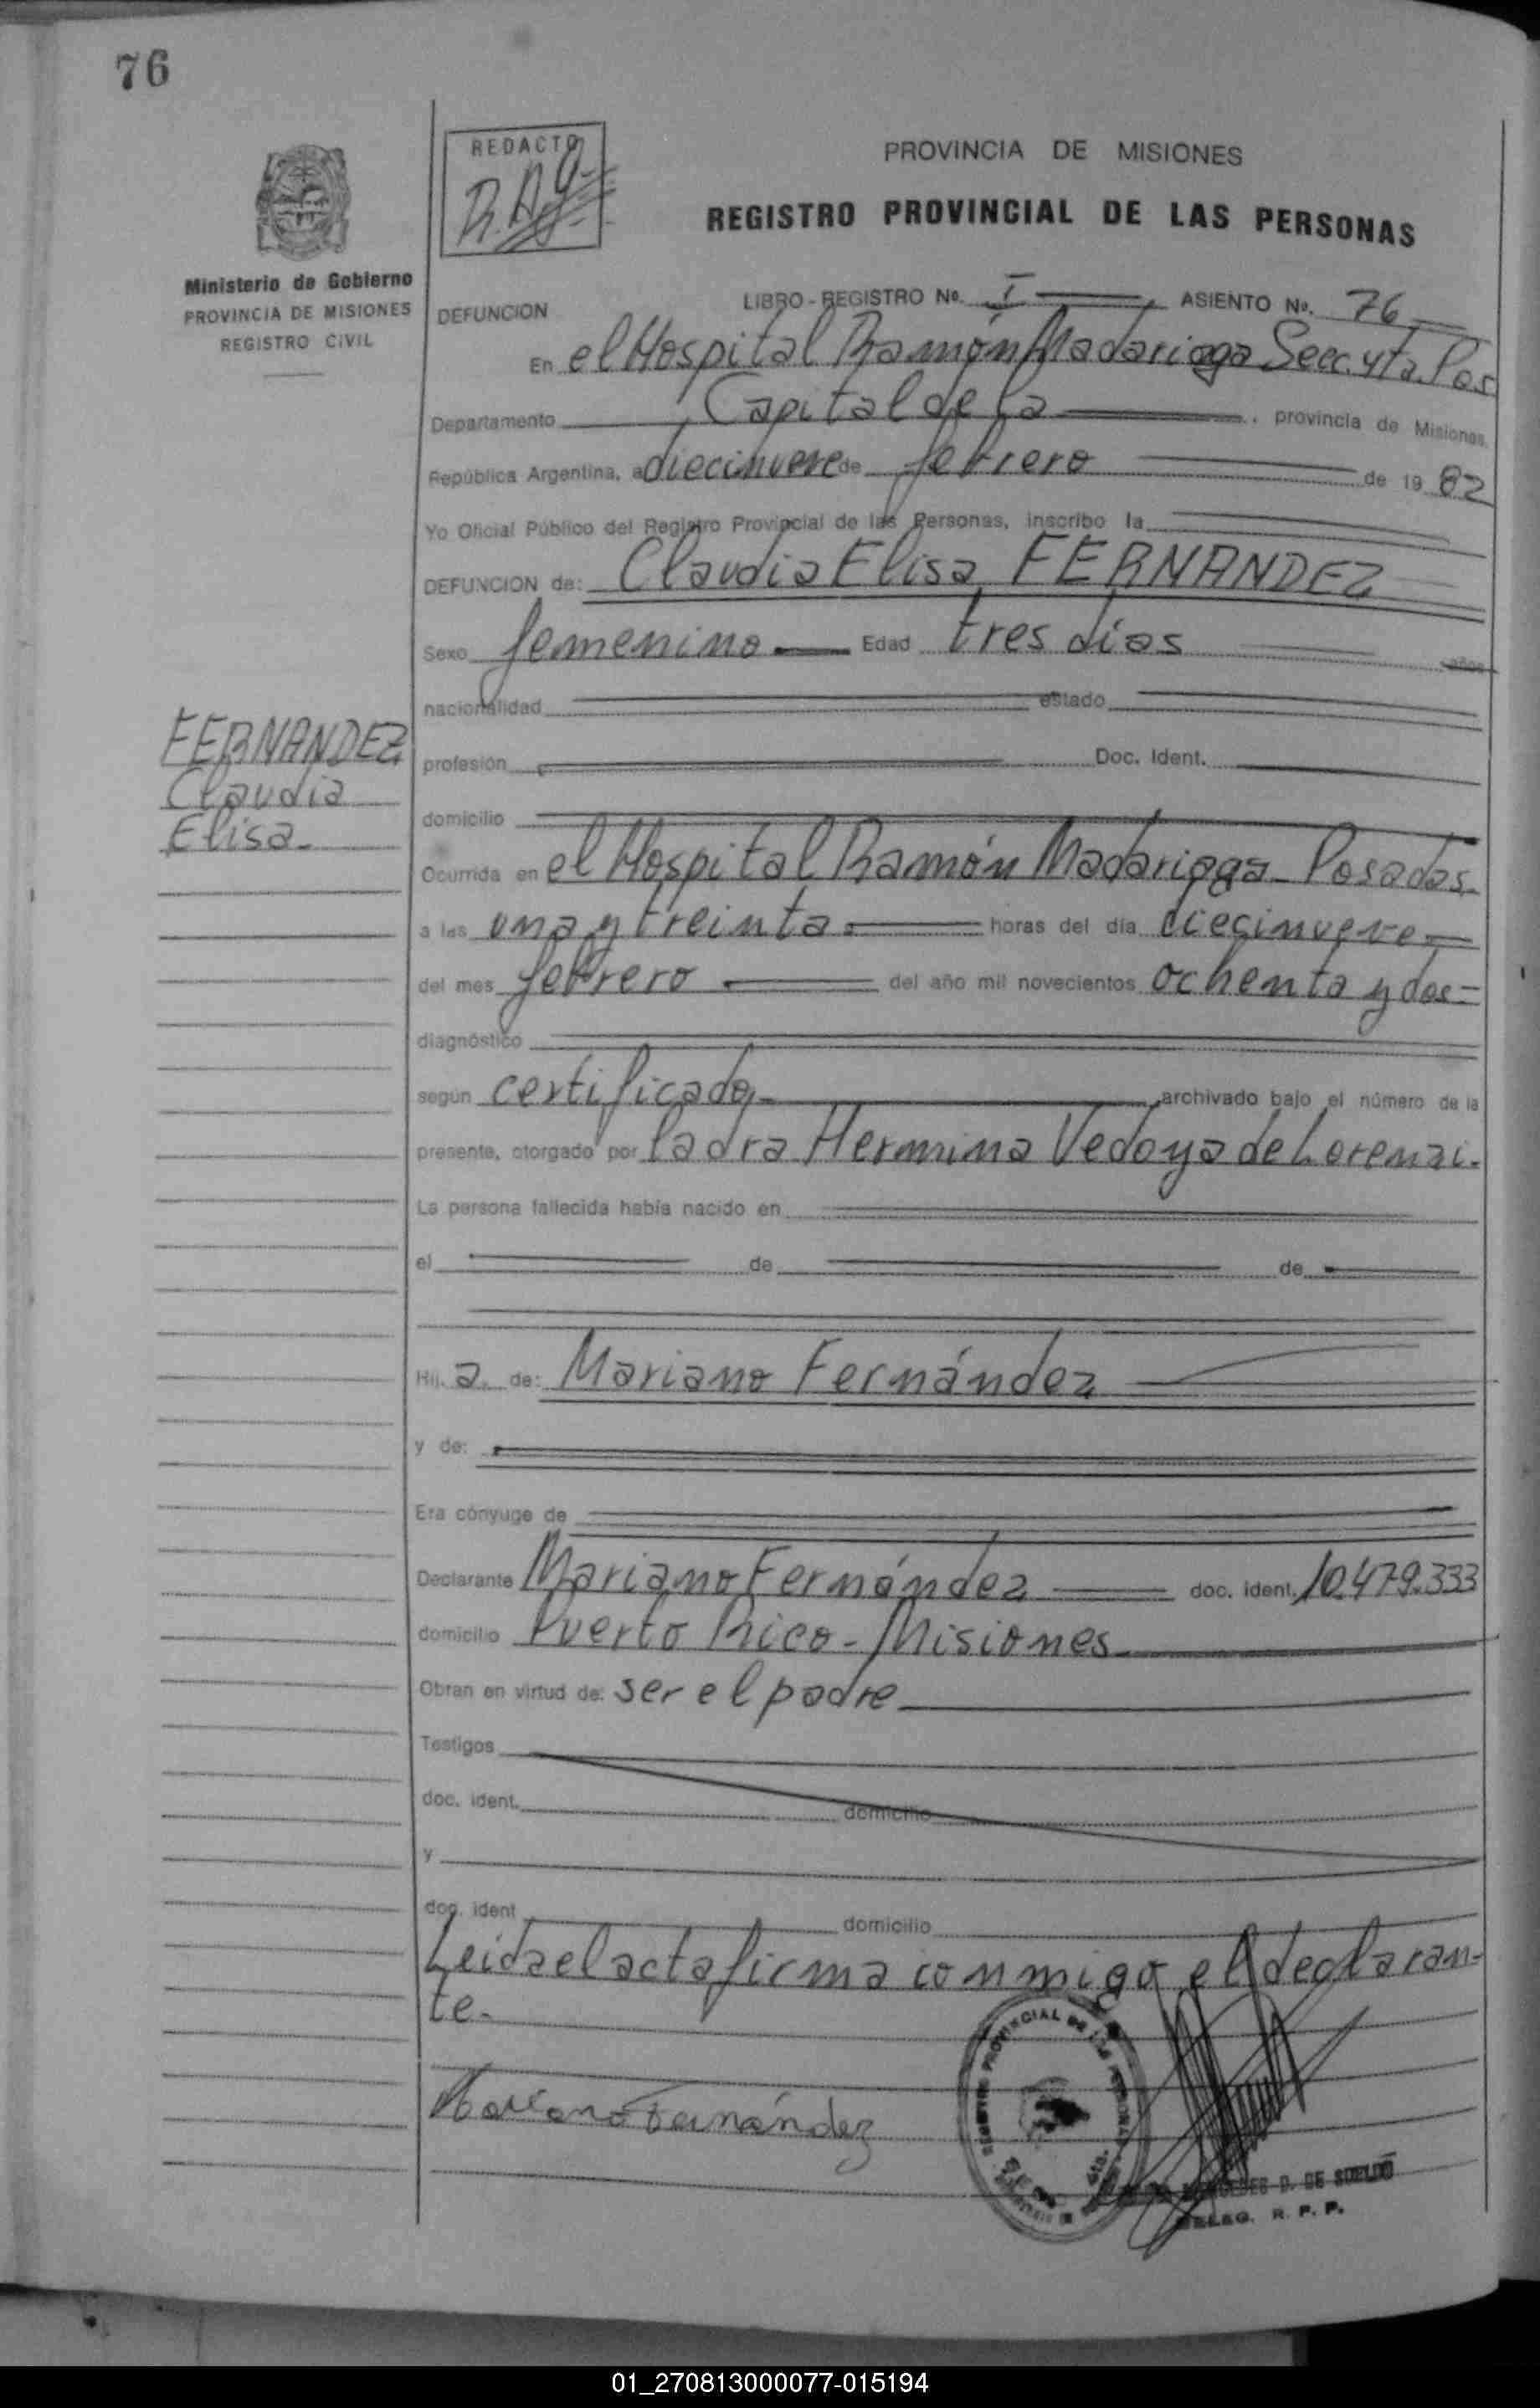 76
REDACTO
PROVINCIA DE MISIONES
REGISTRO PROVINCIAL DE LAS PERSONAS
Ministerio de Gobierno
PROVINCIA DE MISIONES
REGISTRO CIVIL
DEFUNCION
LIBRO - REGISTRO Nº. I ASIENTO Nº. 76
En el Hospital Ramón Madariaga Secc. 4ta. Pos
Departamento Capital de la , provincia de Misiones,
República Argentina, a diecinueve de febrero de 19 82
Yo Oficial Público del Registro Provincial de las Personas, inscribo la
DEFUNCION de: Claudia Elisa FERNANDEZ
Sexo femenino Edad tres días años
nacionalidad estado
FERNANDEZ
Claudia
Elisa.
profesión Doc. Ident.
domicilio
Ocurrida en el Hospital Ramón Madariaga - Posadas
a las una y treinta horas del día diecinueve
del mes febrero del año mil novecientos ochenta y dos
diagnóstico
según certificado archivado bajo el número de la
presente, otorgado por la dra Hermina Vedoya de Lorenzi.
La persona fallecida había nacido en
el de de
Hij a. de: Mariano Fernández
y de:
Era cónyuge de
Declarante Mariano Fernández doc. ident. 10.479.333
domicilio Puerto Rico - Misiones
Obran en virtud de: ser el padre
Testigos
doc. ident. domicilio
y
doc. ident domicilio
Leida el acta firma conmigo el declaran-
te.
Mariano Fernández
D. DE SOELDO
DELEG. R. P. P.
01_270813000077-015194